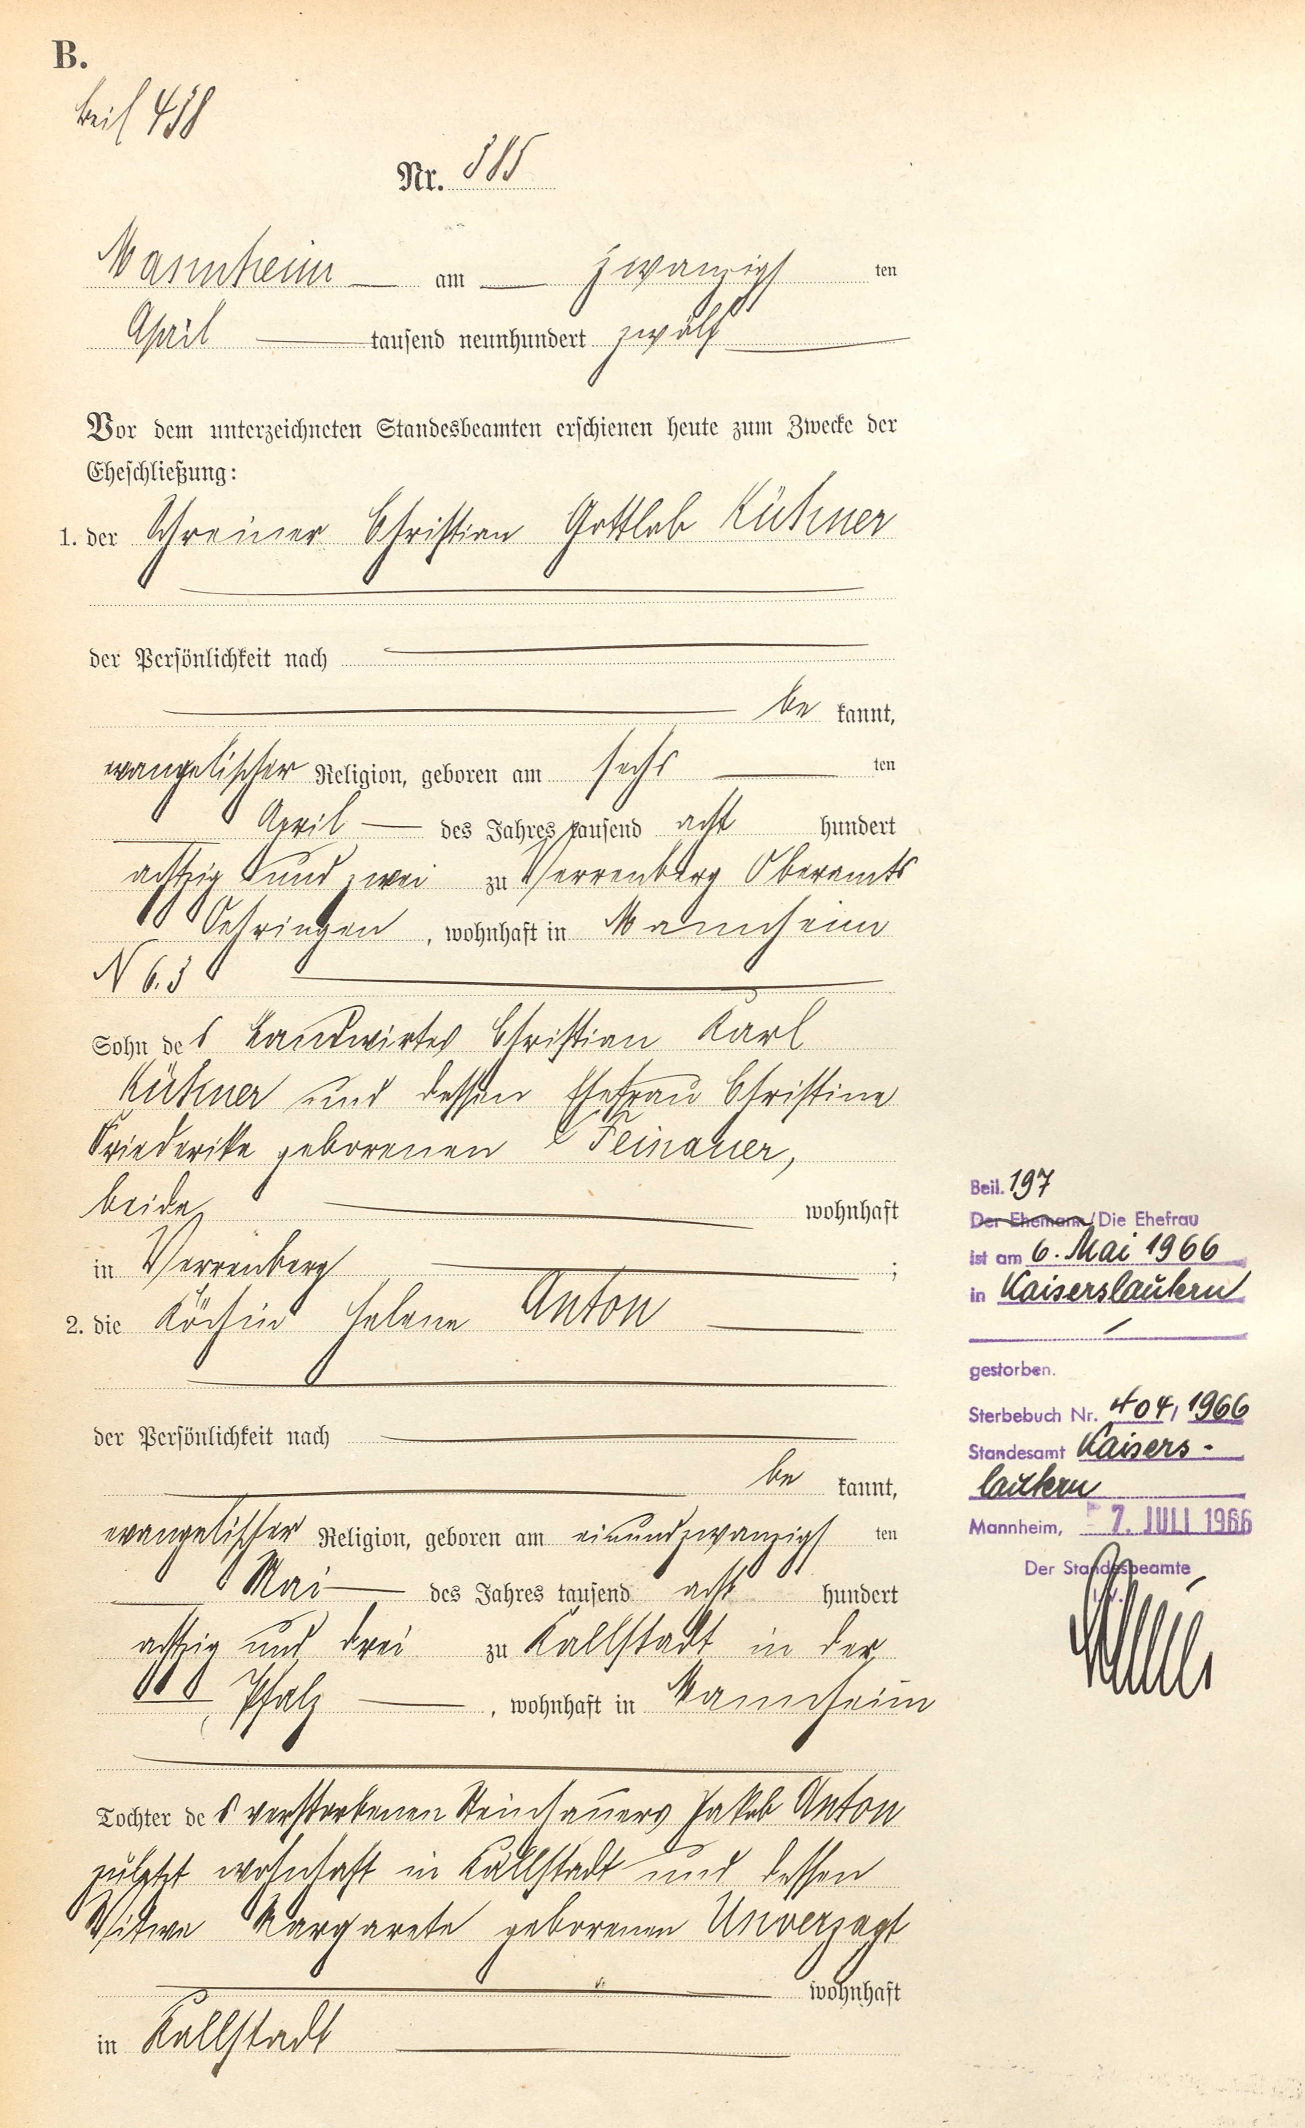 B.
Beil 438
Nr. 385
Mannheim am zwanzigs ten
April tausend neunhundert zwölf
Vor dem unterzeichneten Standesbeamten erschienen heute zum Zwecke der
Eheschließung:
1. der Schreiner Christian Gottlob Kühner
der Persönlichkeit nach
be kannt,
evangelischer Religion, geboren am sechs ten
April des Jahres tausend acht hundert
achtzig und zwei zu Verrenberg Oberamts
Oehringen, wohnhaft in Mannheim
N 6.3
Sohn des Landwirtes Christian Karl
Kühner und dessen Ehefrau Christine
Friederike geborenen Feinauer,
beide wohnhaft
in Verrenberg ;
2. die Köchin Helene Anton
der Persönlichkeit nach
be kannt,
evangelischer Religion, geboren am einundzwanzigs ten
Mai des Jahres tausend acht hundert
achtzig und drei zu Kallstadt in der
Pfalz, wohnhaft in Mannheim
Tochter des verstorbenen Steinhauers Jakob Anton
zuletzt wohnhaft in Kallstadt und dessen
Witwe Margarete geborenen Unverzagt
wohnhaft
in Kallstadt
Beil. 197
Der Ehemann/Die Ehefrau
ist am 6. Mai 1966
in Kaiserslautern
gestorben.
Sterbebuch Nr. 404/1966
Standesamt Kaisers-
lautern
Mannheim, 7. JULI 1966
Der Standesbeamte